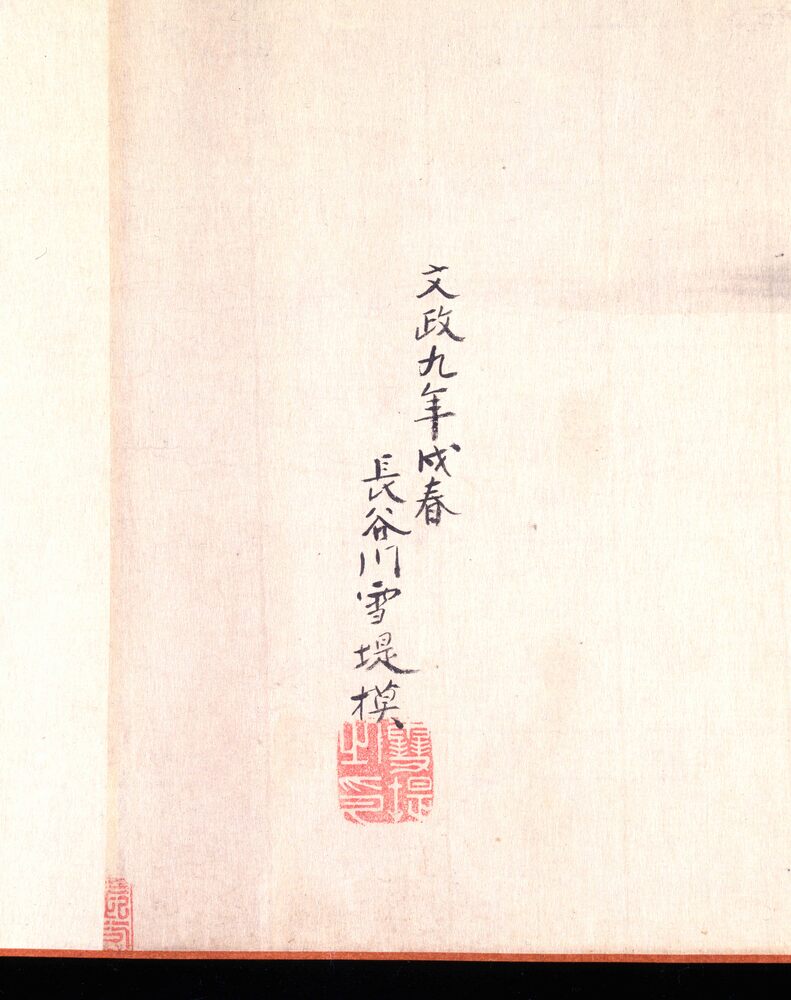 文政九年戌春
長谷川雪堤模
雪堤
之印